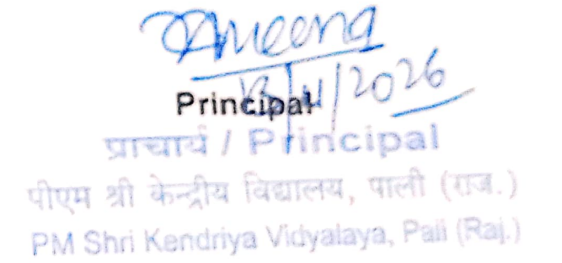 Meena
/2026
Principal
प्राचार्य / Principal
पीएम श्री केन्द्रीय विद्यालय, पाली (राज.)
PM Shri Kendriya Vidyalaya, Pali (Raj.)